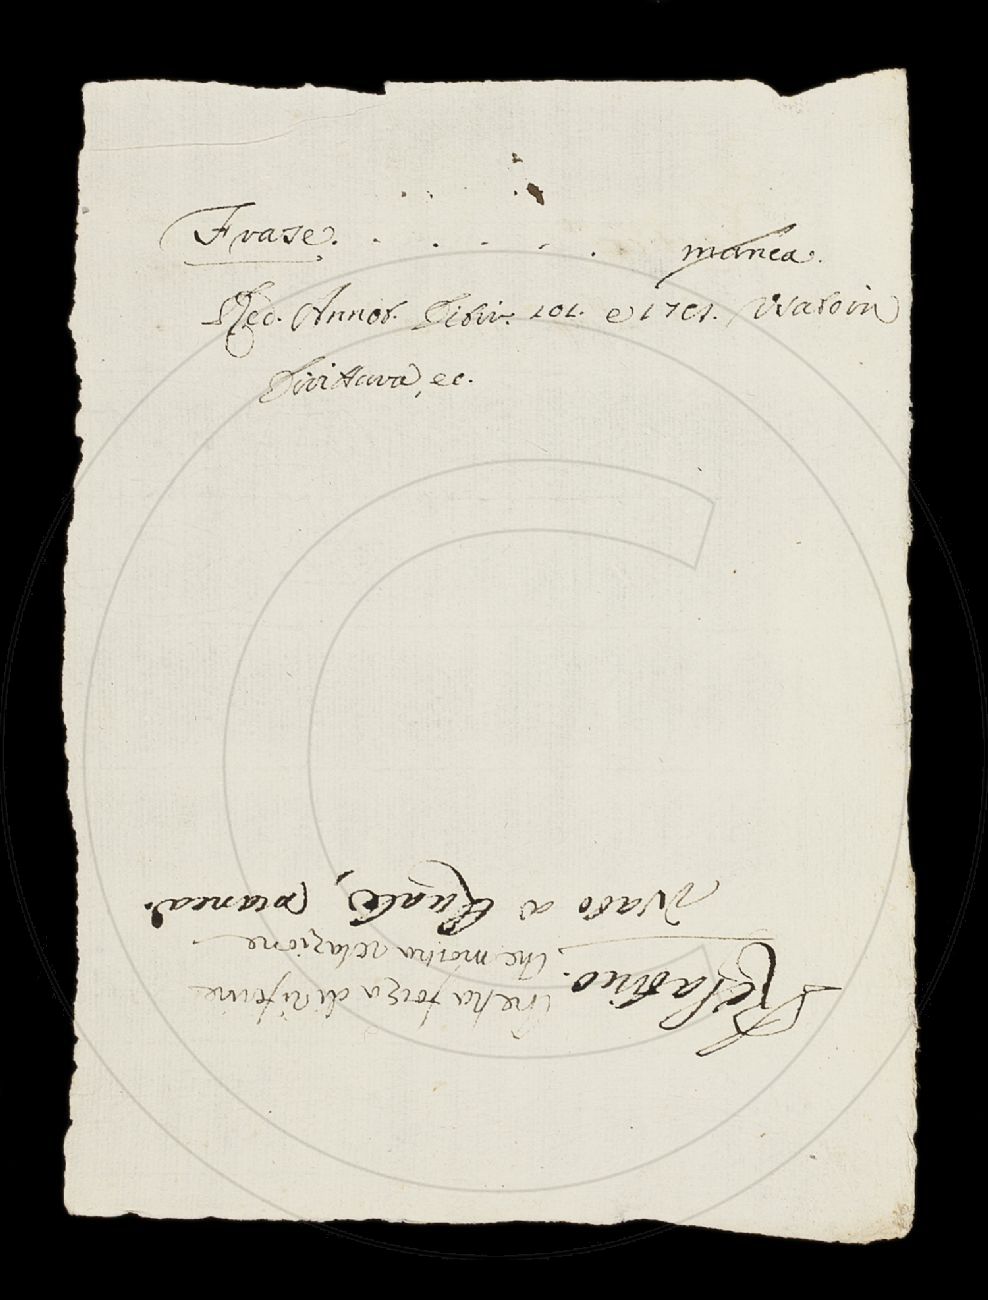 Frase. . . . . . manca.
Red. Annot. Ditir. 101. e 1701. Usato in
Scrittura, ec.
Relativo. Che ha forza di riferire
Che mostra relazione
Usato a Quale, manca.